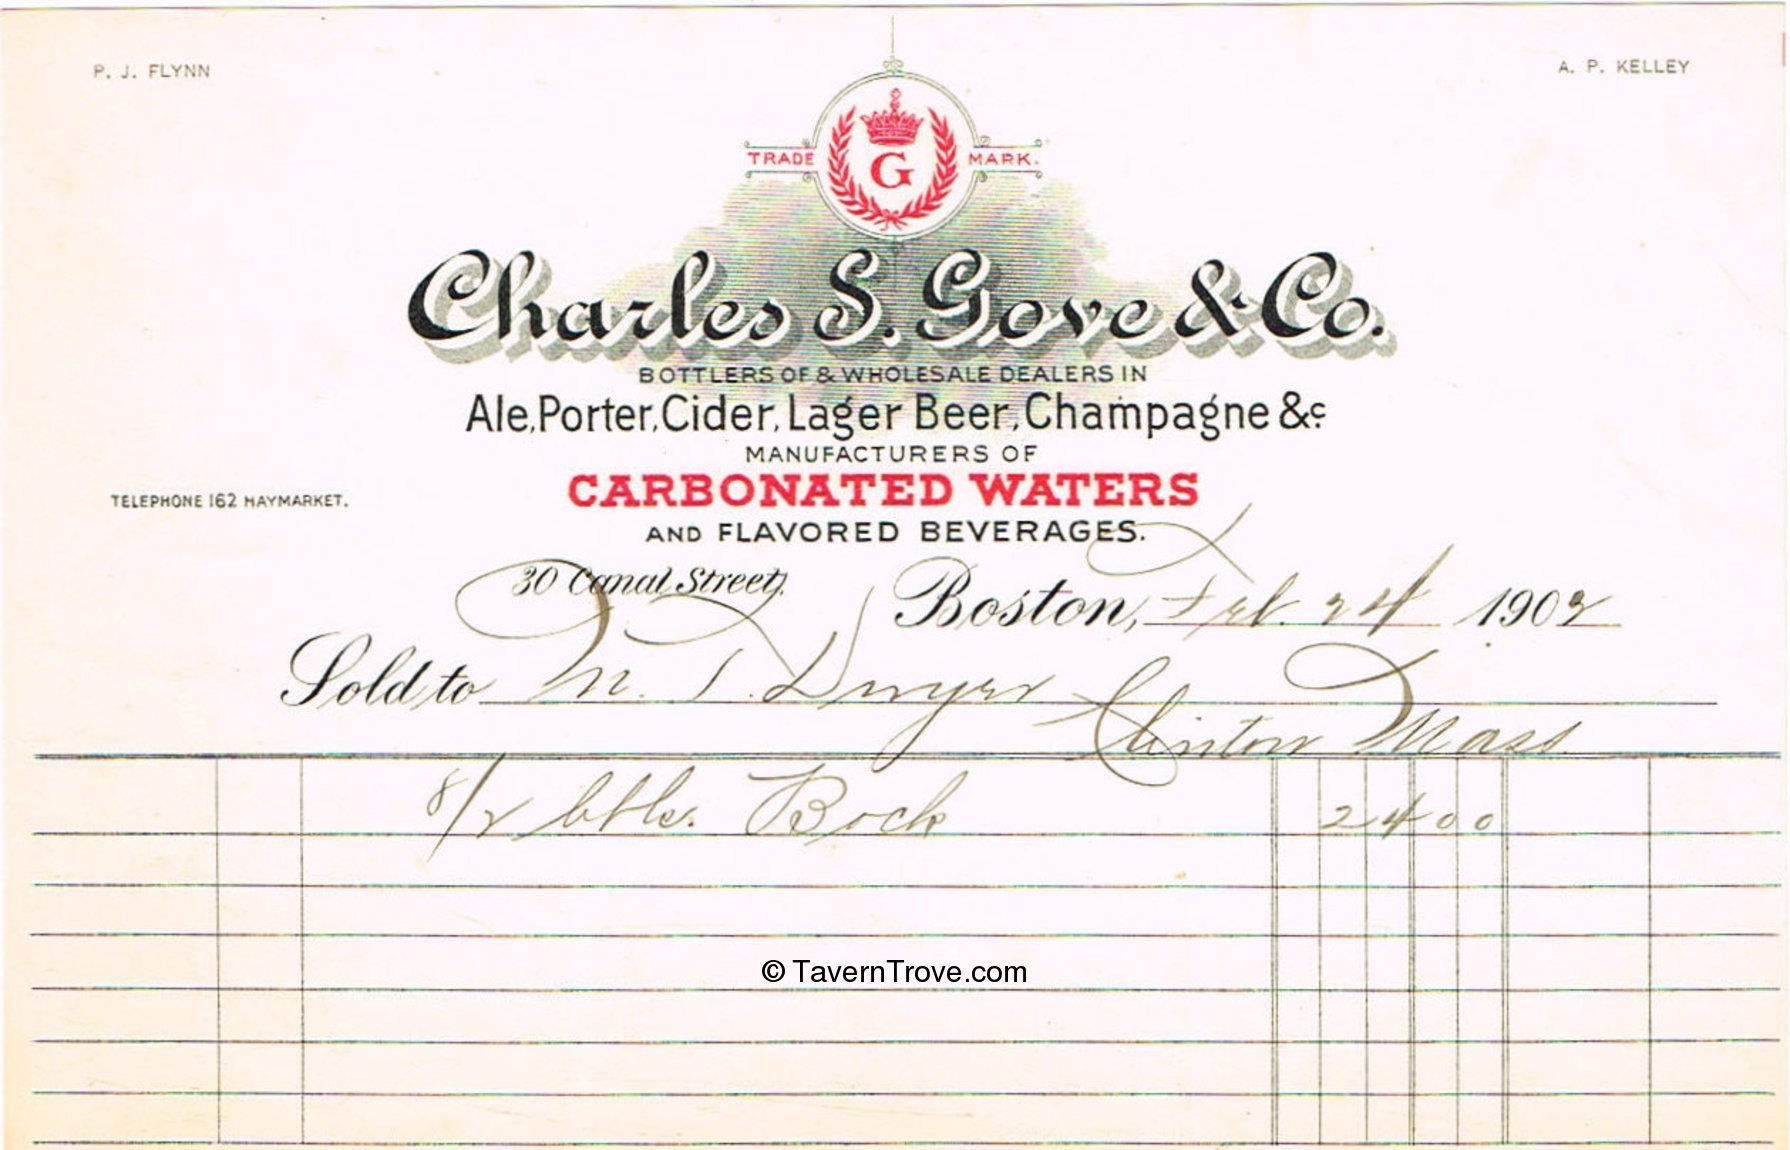 P. J. FLYNN
A. P. KELLEY
TRADE G MARK.
Charles S. Gove & Co.
BOTTLERS OF & WHOLESALE DEALERS IN
Ale, Porter, Cider, Lager Beer, Champagne &c.
MANUFACTURERS OF
CARBONATED WATERS
TELEPHONE 162 HAYMARKET.
AND FLAVORED BEVERAGES.
30 Canal Street,
Boston, Feb. 24 1902
Sold to M. T. Dwyer
Clinton Mass
8/2 bbls. Bock 24 00
© TavernTrove.com